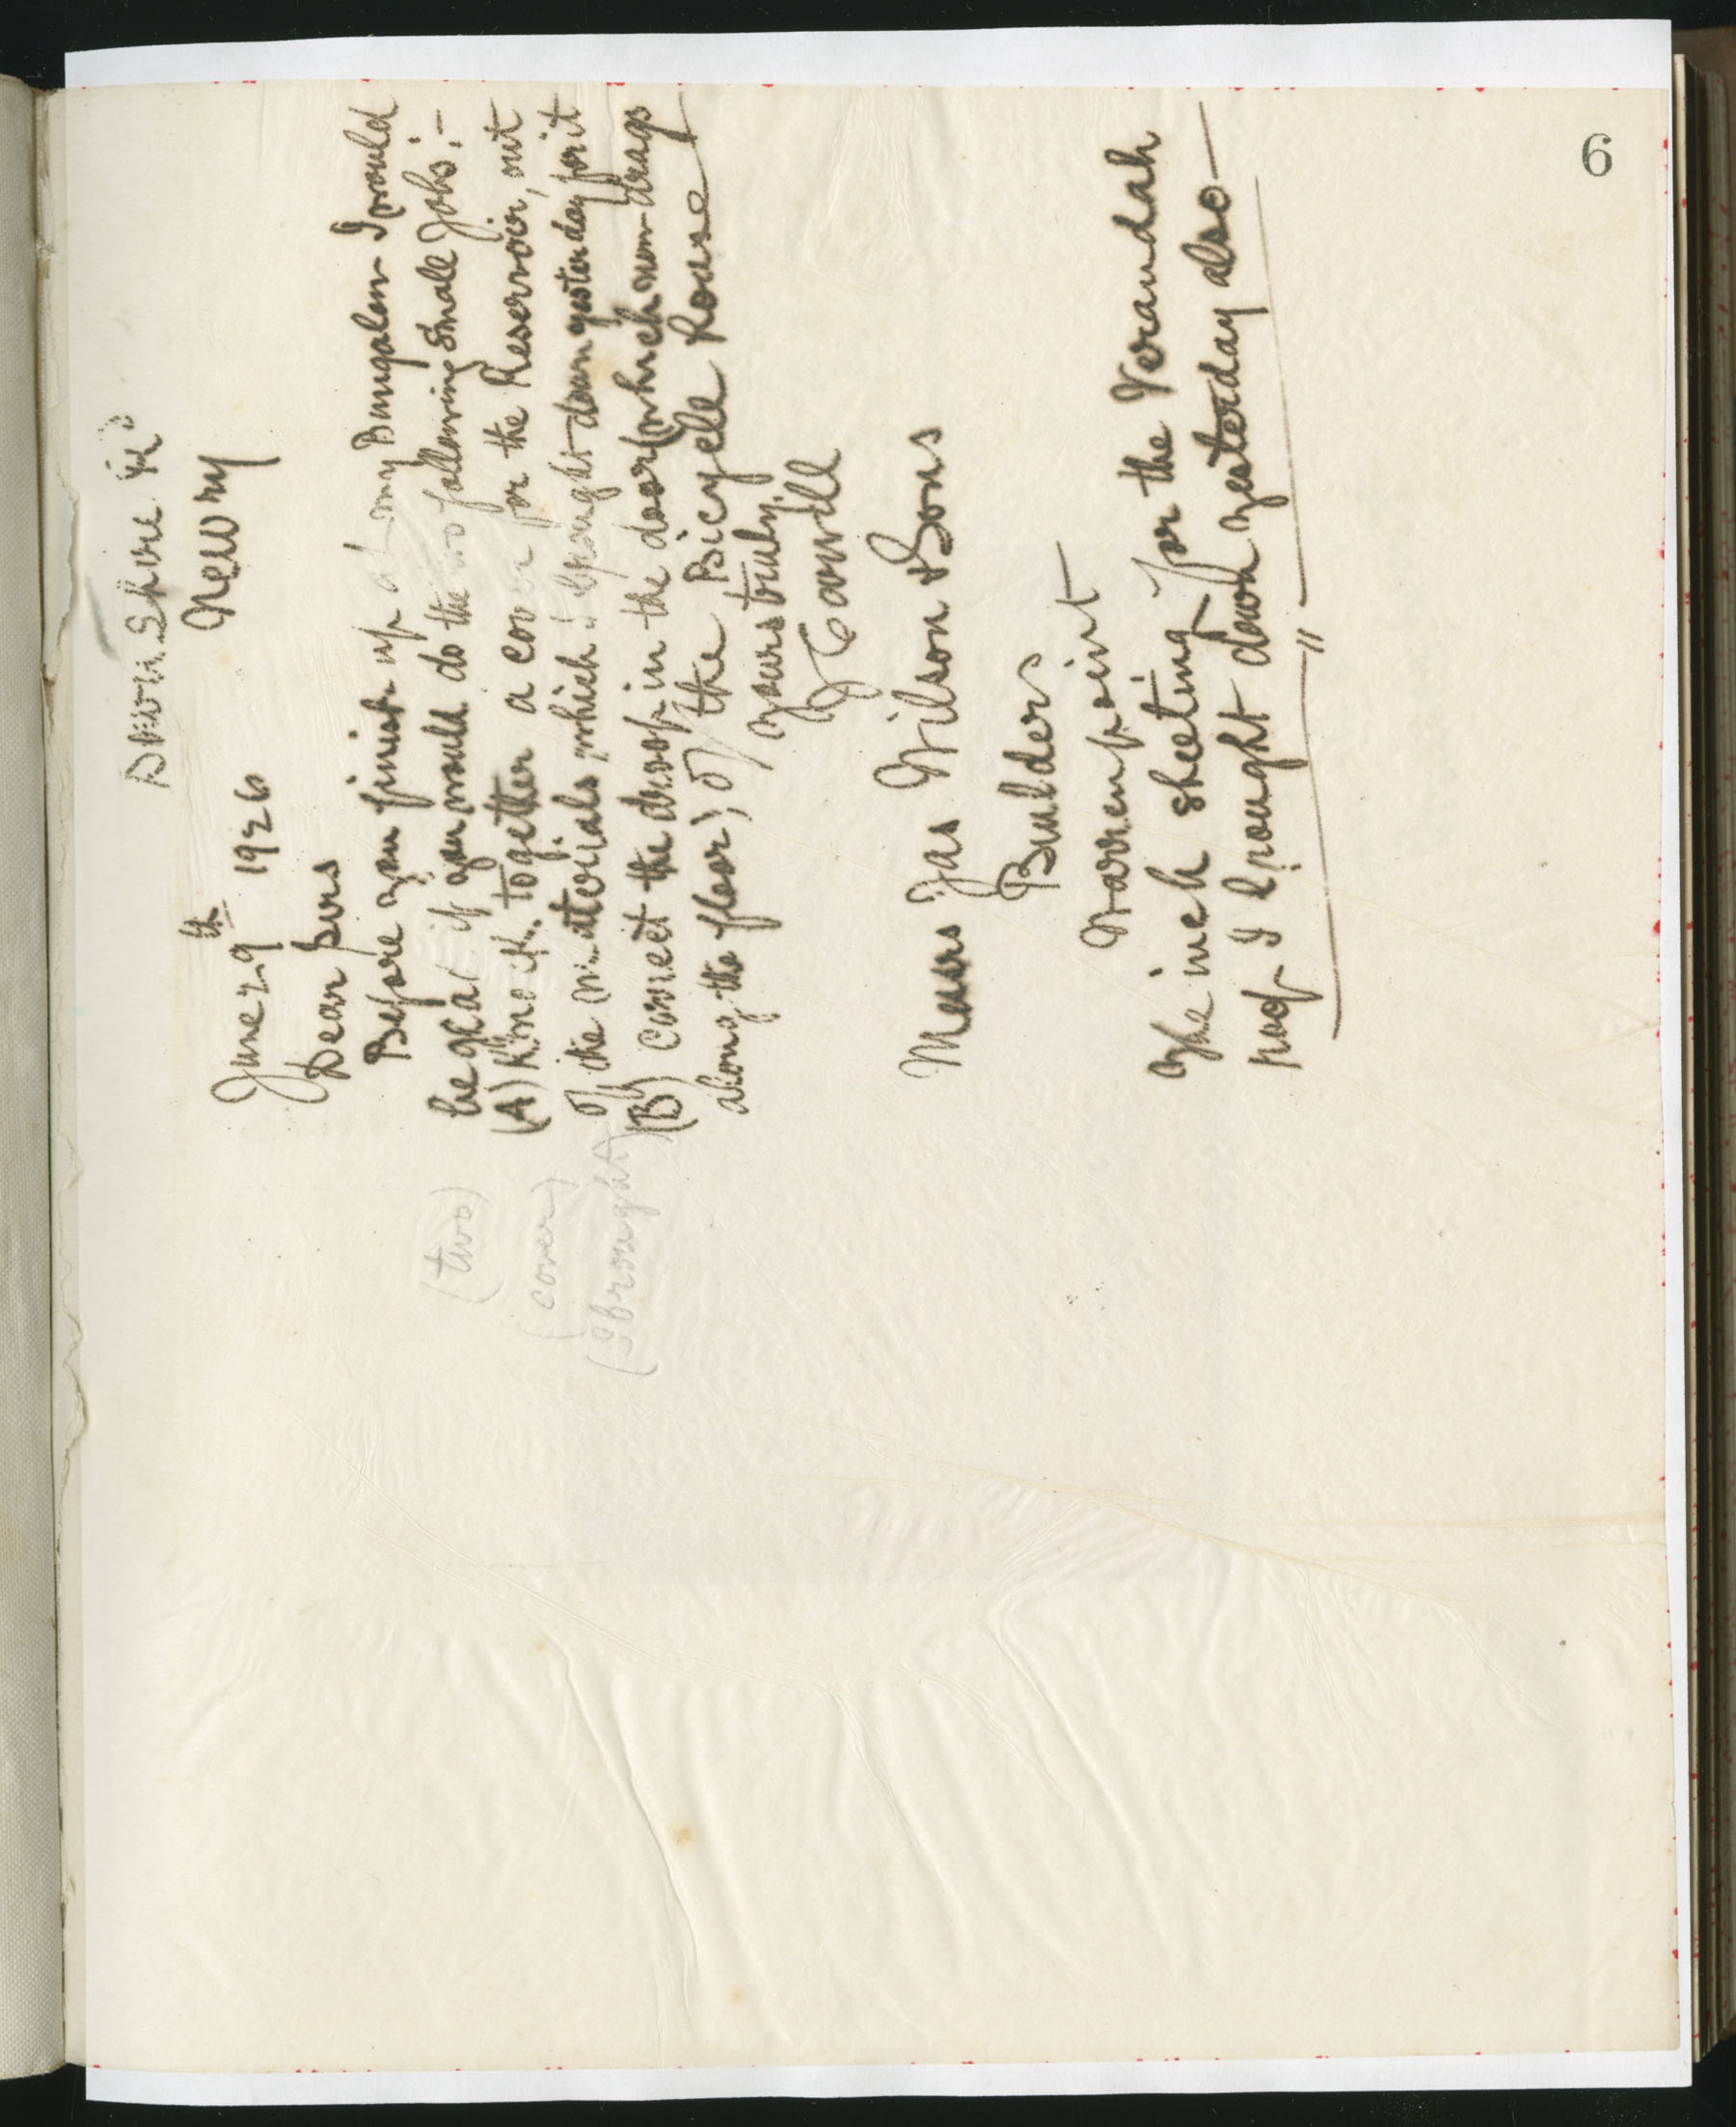 6
Downshire Rd
Newry
June 29th 1926
Dear Sirs
Before you finish up at my Bungalow I would
be glad if you would do the two following small Jobs:-
(two)
(A) Knock together a cover for the Reservoir, out
(cover)
of the materials which I brought down yesterday for it
(I brought)
(B) Correct the droop in the door (which now drags
along the floor) of the Bicycle House
yours truly
Messrs Jas Wilson & Sons
Builders
Warrenpoint
The inch sheeting for the Verandah
roof I brought down yesterday also —